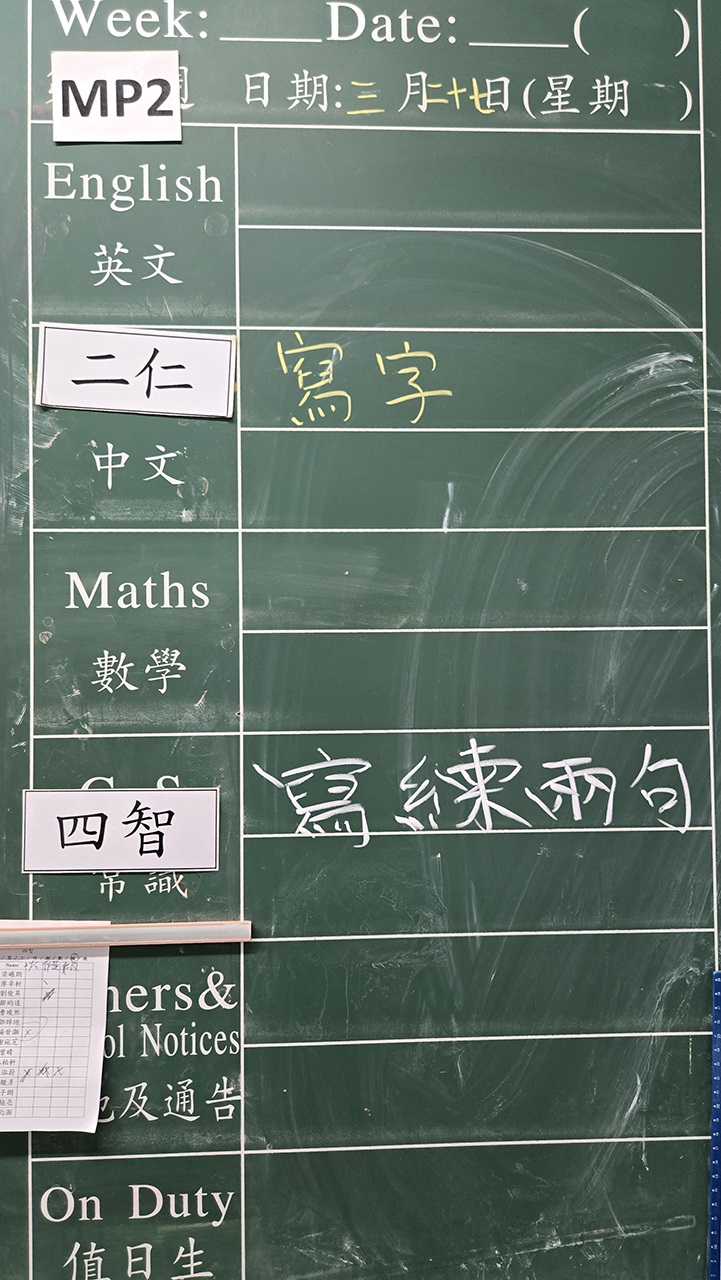 Week: ____ Date: ____ ( )
MP2 週 日期: 三月二十七日(星期 )
English
英文
二仁 寫字
中文
Maths
數學
四智 寫練兩句
常識
hers&
ol Notices
及通告
Name
On Duty
值日生